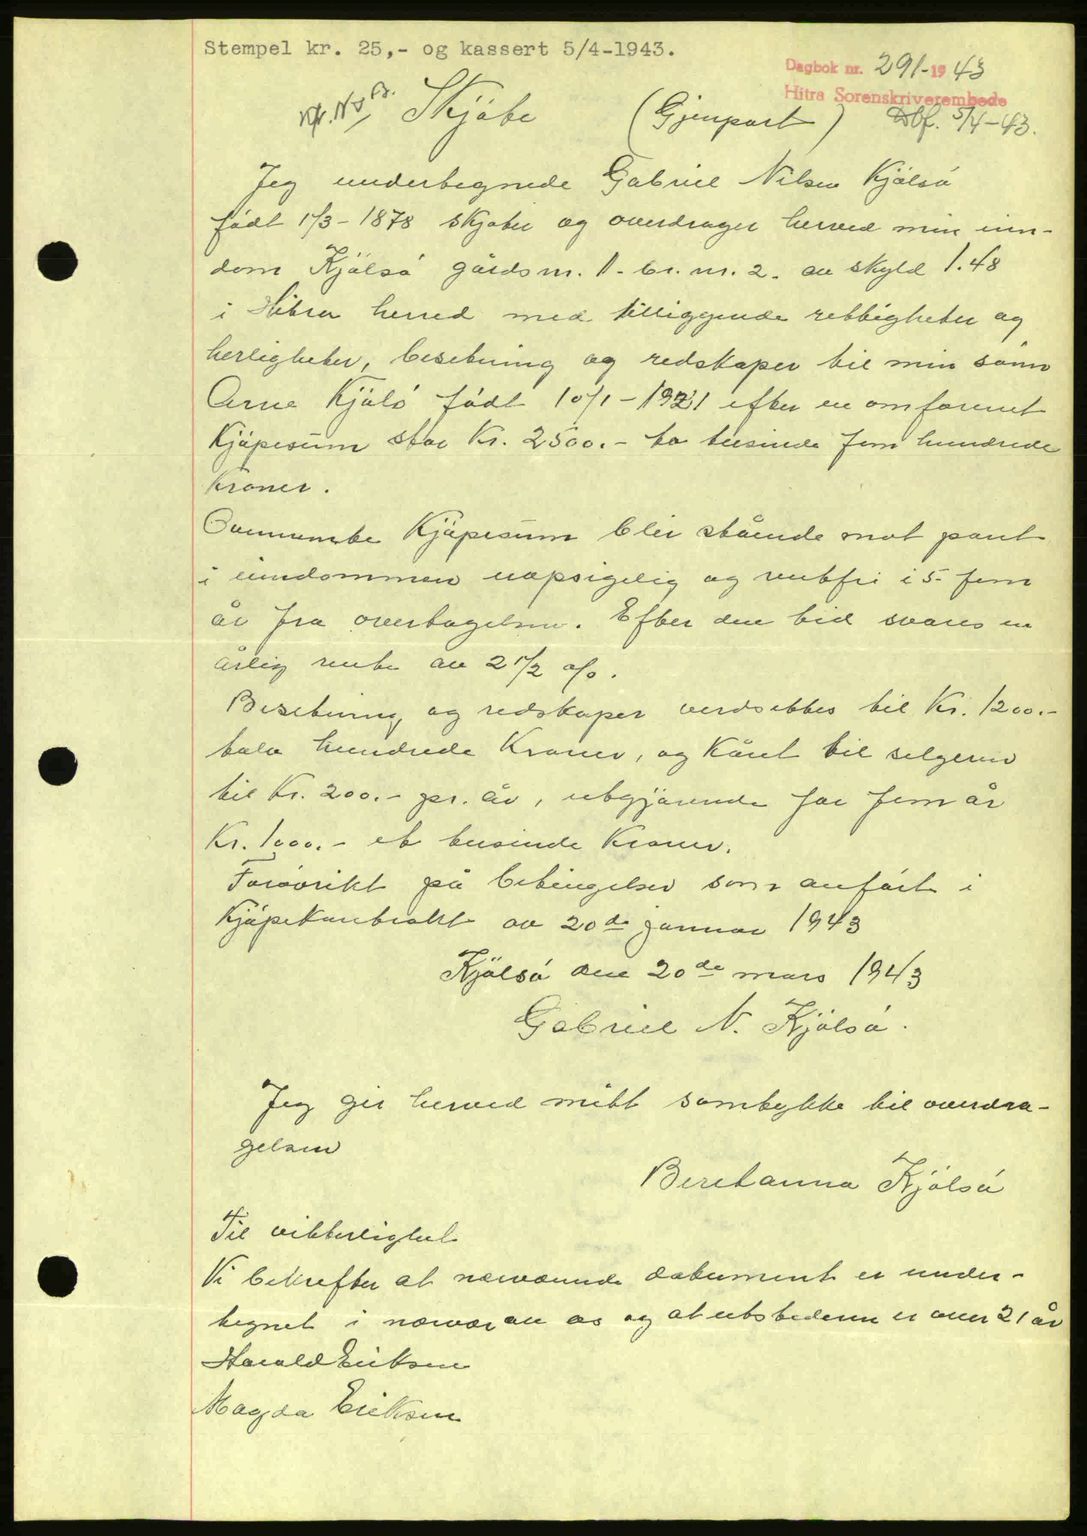 Stempel kr. 25,- og kassert 5/4-1943.
Dagbok nr. 291-1943
Hitra Sorenskriverembede
Skjöte (Gjenpart) Dbf. 5/4-43.
Jeg undertegnede Gabriel Nilsen Kjölsö
födt 1/3-1878 skjöter og overdrager herved min iein-
dom Kjölsö gårdsnr. 1. br. nr. 2. av skyld 1.48
i Hitra herred med tilliggende rettigheter og
herligheter, besetning og redskaper til min sönn
Arne Kjölsö födt 10/1-1921 efter en omforenet
Kjöpesum stor Kr. 2500.- to tusinde fem hundrede
Kroner.
Ovennevnte Kjöpesum blir stående mot pant
i eiendommen uopsigelig og rentfri i 5- fem
år fra overtagelsen. Efter den tid svares en
årlig rente av 2 1/2 o/o.
Besetning og redskaper verdsettes til Kr. 1200.-
tolv hundrede Kroner, og Kåret til selgeren
til Kr. 200.- pr. år, utgjörende for fem år
Kr. 1000.- et tusinde Kroner.
Forövrikt på betingelser som anfört i
Kjöpekontrakt av 20de januar 1943
Kjölsö den 20de mars 1943
Gabriel N. Kjölsö.
Jeg gir herved mitt samtykke til overdra-
gelsen
Beretanna Kjölsö
Til vitterlighet
Vi bekrefter at nærværende dokument er under-
tegnet i nærvær av os og at utstederen er over 21 år
Harald Eriksen
Magda Eriksen